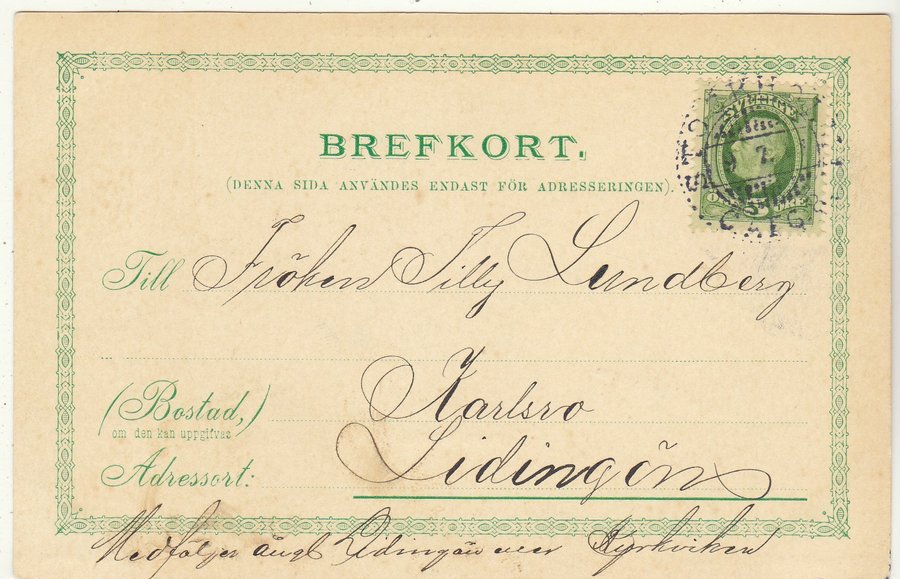 BREFKORT.
(DENNA SIDA ANVÄNDES ENDAST FÖR ADRESSERINGEN).
SVERIGE
Till Fröken Tilly Lundberg
(Bostad,) Karlsro
om den kan uppgifvas
Adressort: Lidingön
Medföljer ångf Lidingön Kyrkviken